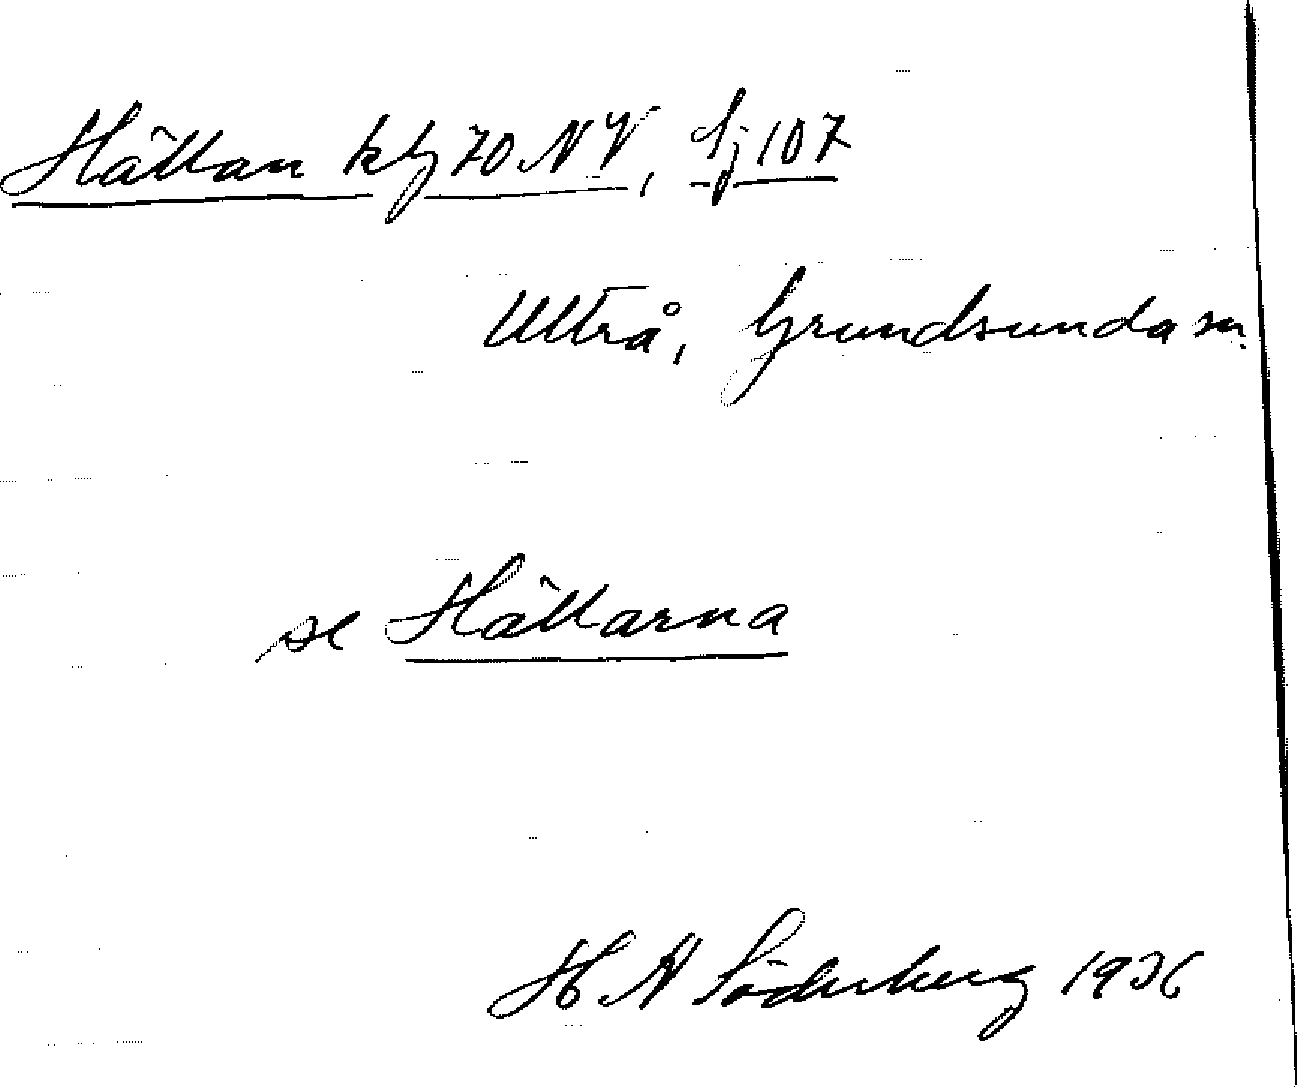 Hällan kbj 70 NV, Sj 107
Ultrå, Grundsunda sn.
se Hällarna
H N Söderberg 1936